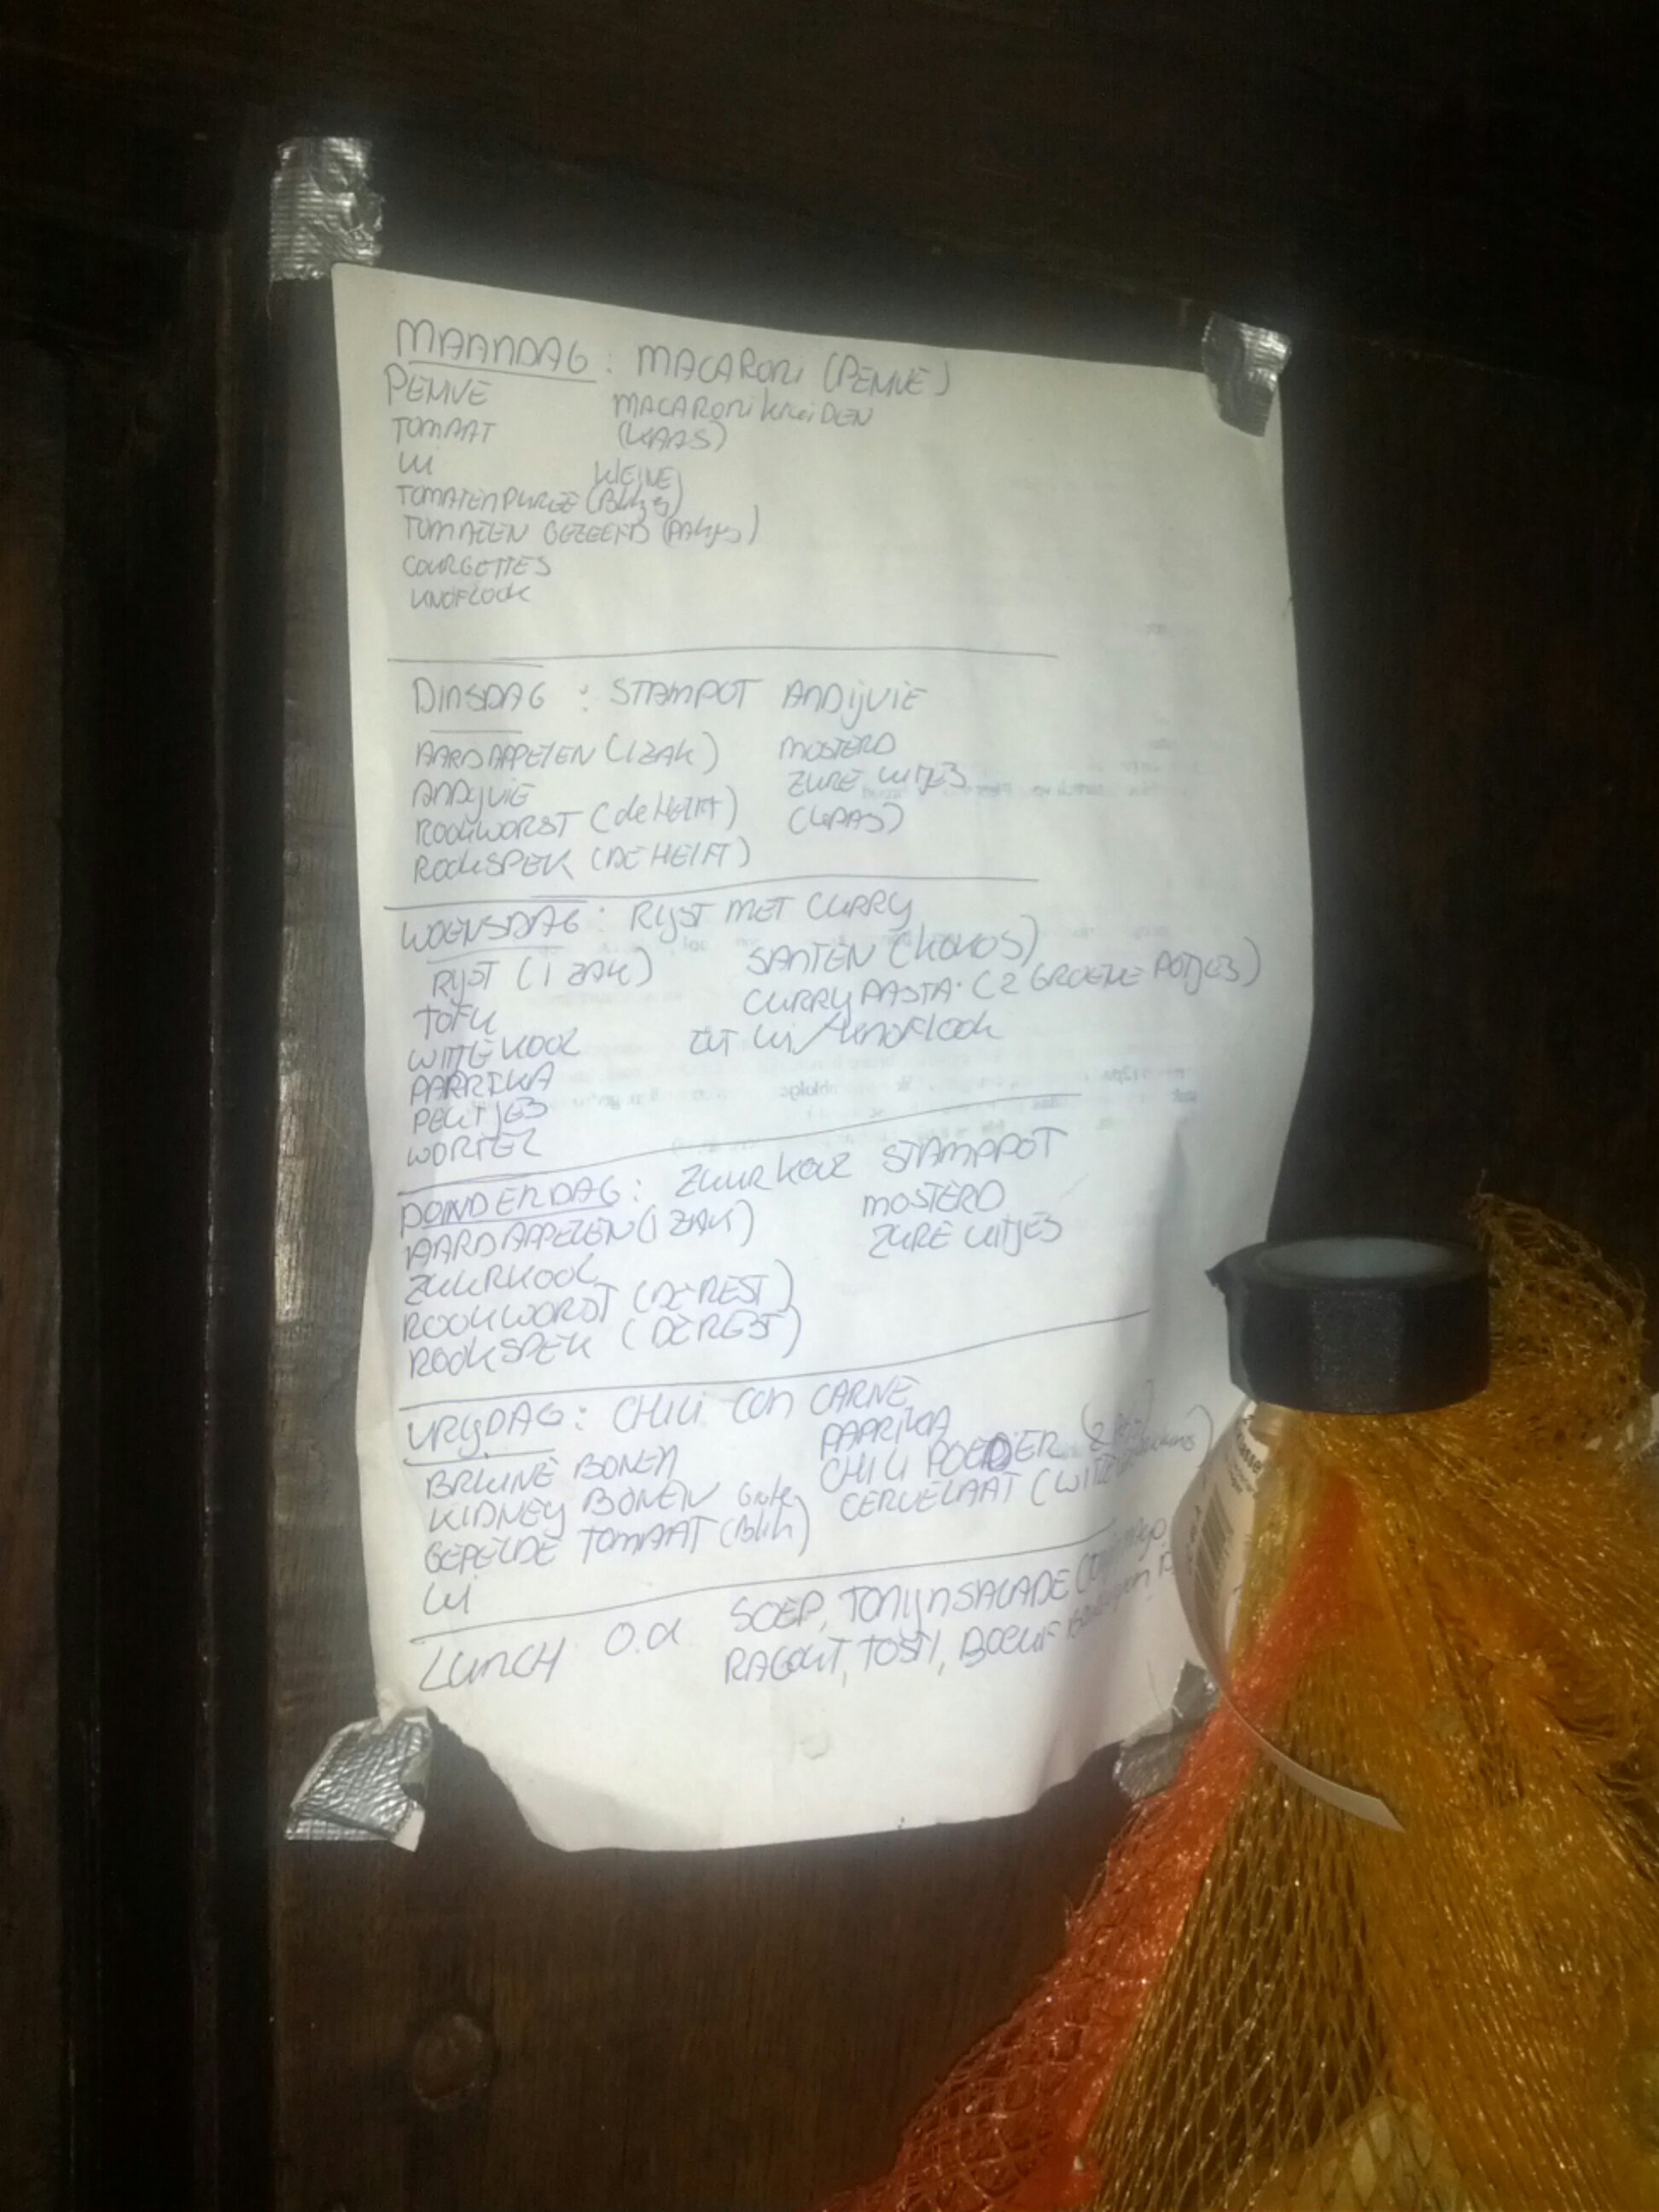 MAANDAG: MACARONI (PENNE)
PENNE MACARONI KRUIDEN
TOMAAT (KAAS)
UI
TOMATENPUREE (KLEINE Blikjes)
TOMATEN GEZEEFD (PAKJES)
COURGETTES
KNOFLOOK
DINSDAG: STAMPOT ANDIJVIE
AARDAPPELEN (1 ZAK) MOSTERD
ANDIJVIE ZURE UITJES
ROOKWORST (de HELFT) (KAAS)
ROOKSPEK (DE HELFT)
WOENSDAG: RIJST MET CURRY
RIJST (1 ZAK) SANTEN (KOKOS)
TOFU CURRY PASTA (2 GROENE POTJES)
WITTE KOOL UI/KNOFLOOK
PAPRIKA
PEULTJES
WORTEL
DONDERDAG: ZUURKOOL STAMPPOT
AARDAPPELEN (1 ZAK) MOSTERD
ZUURKOOL ZURE UITJES
ROOKWORST (DE REST)
ROOKSPEK (DE REST)
VRIJDAG: CHILI CON CARNE
BRUINE BONEN PAPRIKA
KIDNEY BONEN CHILI POEDER (2
GEPELDE TOMAAT (Grote Blik) CERVELAAT (WITTE
UI
LUNCH O.a SOEP, TONIJNSALADE
RAGOUT, TOSTI, BOEUF